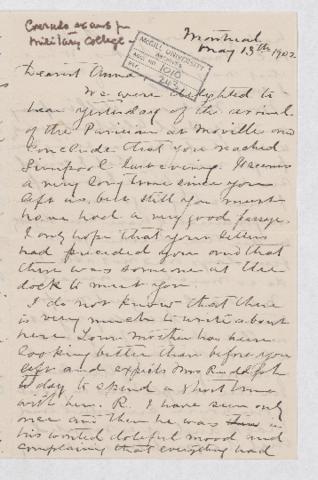 Conrad's exams for
Military College
Montreal
May 13th 1902.
McGILL UNIVERSITY
ARCHIVES
ACC. NO. 1010
REF.
Dearest Anna
We were delighted to
hear yesterday of the arrival
of the Parisian at Moville and
conclude that you reached
Liverpool last evening. It seems
a very long time since you
left us, but still you must
have had a very good passage.
I only hope that your letters
had preceded you and that
there was someone at the
dock to meet you.
I do not know that there
is very much to write about
here. Your mother has been
looking better than before you
left and expects Mrs Ruddick
to day to spend a short time
with her. R. I have seen only
once and then he was in
his wonted doleful mood and
complaining that everything had